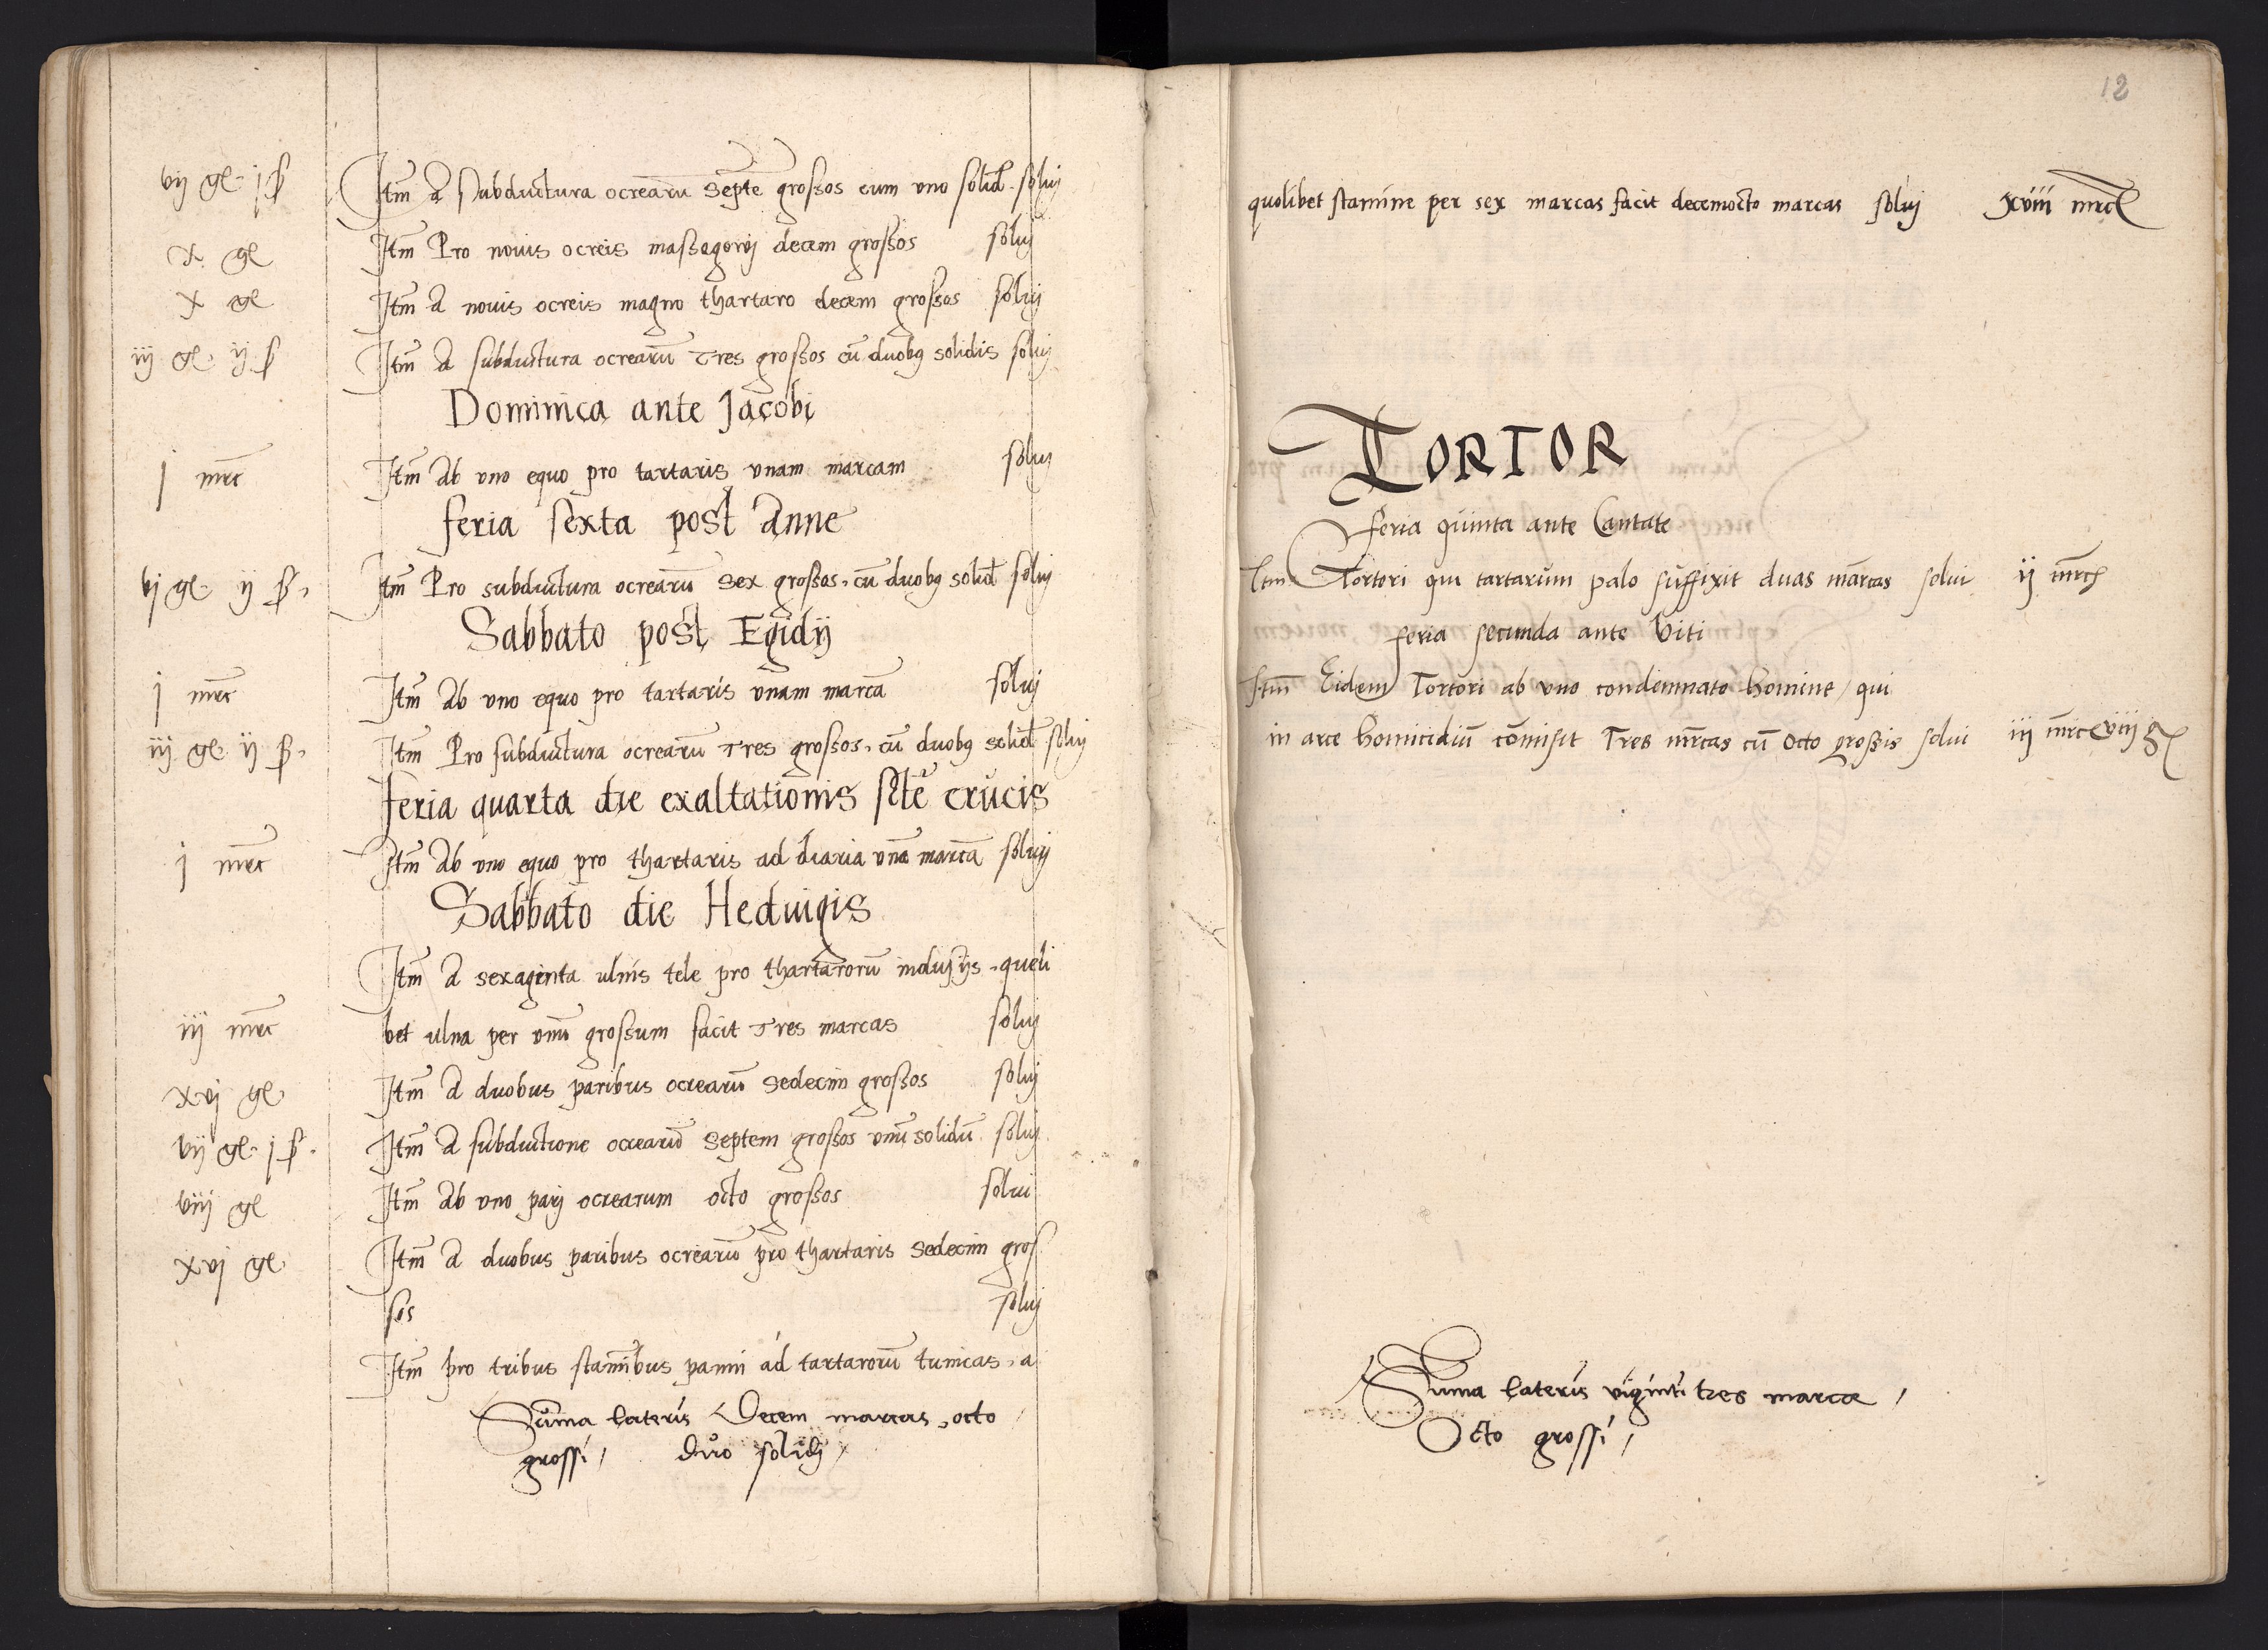 vij gl j ß Itm A subductura ocrearu Septe grossos cum vno solid solui
x gl Itm Pro nouis ocreis decem grossos solui
x gl Itm A nouis ocreis magno thartaro decem grossos solui
iij gl ij ß Itm A subductura ocrearū Tres grossos cū duobq solidis solui
Dominica ante Jacobi
j mrc Itm Ab vno equo pro tartaris vnam marcam solui
feria sexta post Anne
vj gl ij ß Itm Pro subductura ocrearū Sex grossos cū duobq solid solui
Sabbato post Egidij
j mrc Itm Ab vno equo pro tartaris vnam marcā soluj
iij gl ij ß Itm Pro subductura ocrearū Tres grossos cū duobq solid soluj
feria quarta die exaltationis scte crucis
j mrc Itm Ab vno equo pro thartaris ad diaria vnā marcā soluj
Sabbato die Heduigis
Itm A sexaginta ulnis tele pro thartarorū indusijs queli
iij mrc bet ulna per vnū grossum facit Tres marcas soluj
xvj gl Itm A duobus paribus ocrearū Sedecim grossos soluj
vij gl j ß Itm A subductione ocrearū Septem grossos vnū solidū soluj
viij gl Itm Ab vno parj ocrearum octo grossos solui
xvj gl Itm A duobus paribus ocrearū pro thartaris Sedecim gros
sos soluj
Itm pro tribus staminibus panni ad tartarorū tunicas a
Suma lateris Decem marcas octo
grossi / duo solidj
12
quolibet stamine per sex marcas facit decemocto marcas soluj xviii mrc
TORTOR
feria quinta ante Cantate
Itm Tortori qui tartarum palo suffixit duas marcas solui ij mrc
feria secunda ante Viti
Itm Eidem Tortori ab vno condemnato homine / qui
in arce homicidiū cōmisit Tres mrcas cū octo grossis solui iij mrc viij g
Suma lateris viginti tres marce /
Octo grossi /